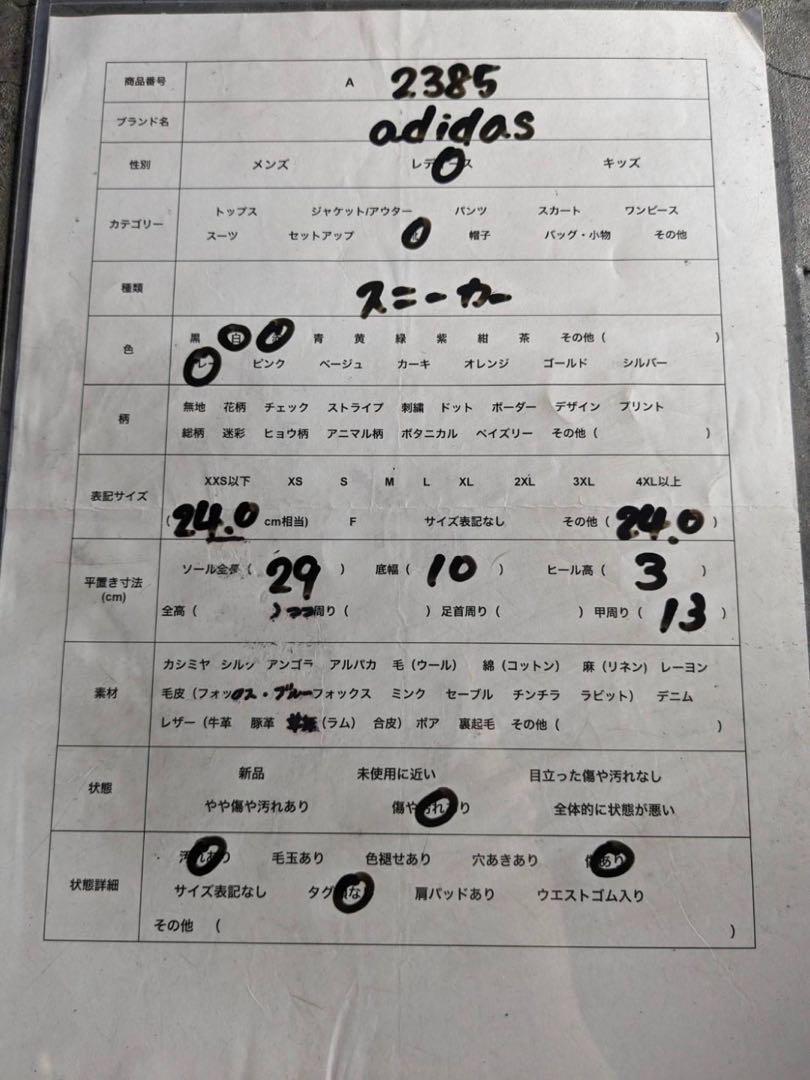 商品番号 A 2385
ブランド名 adidas
性別 メンズ レディース キッズ
カテゴリー トップス ジャケット/アウター パンツ スカート ワンピース
スーツ セットアップ 帽子 バッグ・小物 その他
種類 スニーカー
色 黒 白 青 黄 緑 紫 紺 茶 その他 ( )
グレー ピンク ベージュ カーキ オレンジ ゴールド シルバー
柄 無地 花柄 チェック ストライプ 刺繍 ドット ボーダー デザイン プリント
総柄 迷彩 ヒョウ柄 アニマル柄 ボタニカル ペイズリー その他 ( )
表記サイズ XXS以下 XS S M L XL 2XL 3XL 4XL以上
(24.0 cm相当) F サイズ表記なし その他 (24.0)
平置き寸法 (cm) ソール全長 (29) 底幅 (10) ヒール高 (3)
全高 ( ) 周り ( ) 足首周り ( ) 甲周り (13)
素材 カシミヤ シルク アンゴラ アルパカ 毛 (ウール) 綿 (コットン) 麻 (リネン) レーヨン
毛皮 (フォックス・ブルーフォックス ミンク セーブル チンチラ ラビット) デニム
レザー (牛革 豚革 (ラム) 合皮) ボア 裏起毛 その他 ( )
状態 新品 未使用に近い 目立った傷や汚れなし
やや傷や汚れあり 傷や汚れあり 全体的に状態が悪い
状態詳細 汚れあり 毛玉あり 色褪せあり 穴あきあり 傷あり
サイズ表記なし タグ なし 肩パッドあり ウエストゴム入り
その他 ( )